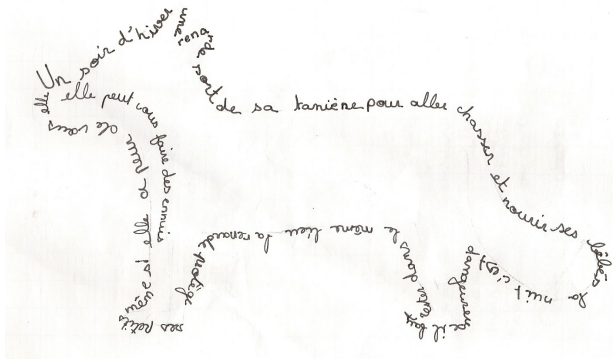 Un soir d'hiver une renarde sort de sa tanière pour aller chasser et nourir ses bébés la nuit c'est dangeureux il faut rester dans le même lieu la renarde protège ses petits même si elle a peur de vous elle elle peut vous faire des ennuis